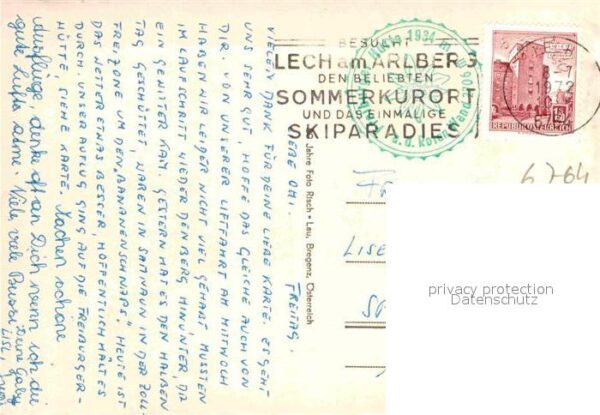 BESUCHT
LECH am ARLBERG
DEN BELIEBTEN
SOMMERKURORT
UND DAS EINMALIGE
SKIPARADIES
1934 m
1972
REPUBLIK ÖSTERREICH
6764
Jahre Foto Risch • Lau, Bregenz, Österreich
privacy protection
Datenschutz
FREITAG,
LIEBE OHI!
VIELEN DANK FÜR DEINE LIEBE KARTE. ES GEHT
UNS SEHR GUT, HOFFE DAS GLEICHE AUCH VON
DIR. VON UNSERER LIFTFAHRT AM MITTWOCH
HABEN WIR LEIDER NICHT VIEL GEHABT MUSSTEN
IM LAUFSCHRITT WIEDER DEN BERG HINUNTER, DA
EIN GEWITTER KAM. GESTERN HAT ES DEN HALBEN
TAG GESCHÜTTET, WAREN IN SAMNAUN IN DER ZOLL-
FREIZONE UM DEN „BANANENSCHNAPS". HEUTE IST
DAS WETTER ETWAS BESSER, HOFFENTLICH HÄLT ES
DURCH. UNSER AUSFLUG GING AUF DIE FREIBURGER-
HÜTTE, SIEHE KARTE. Machen schöne
Ausflüge, denke oft an Dich wenn ich die
gute Luft atme. Viele viele Bussi Deine Gabi
LISL,
LISE